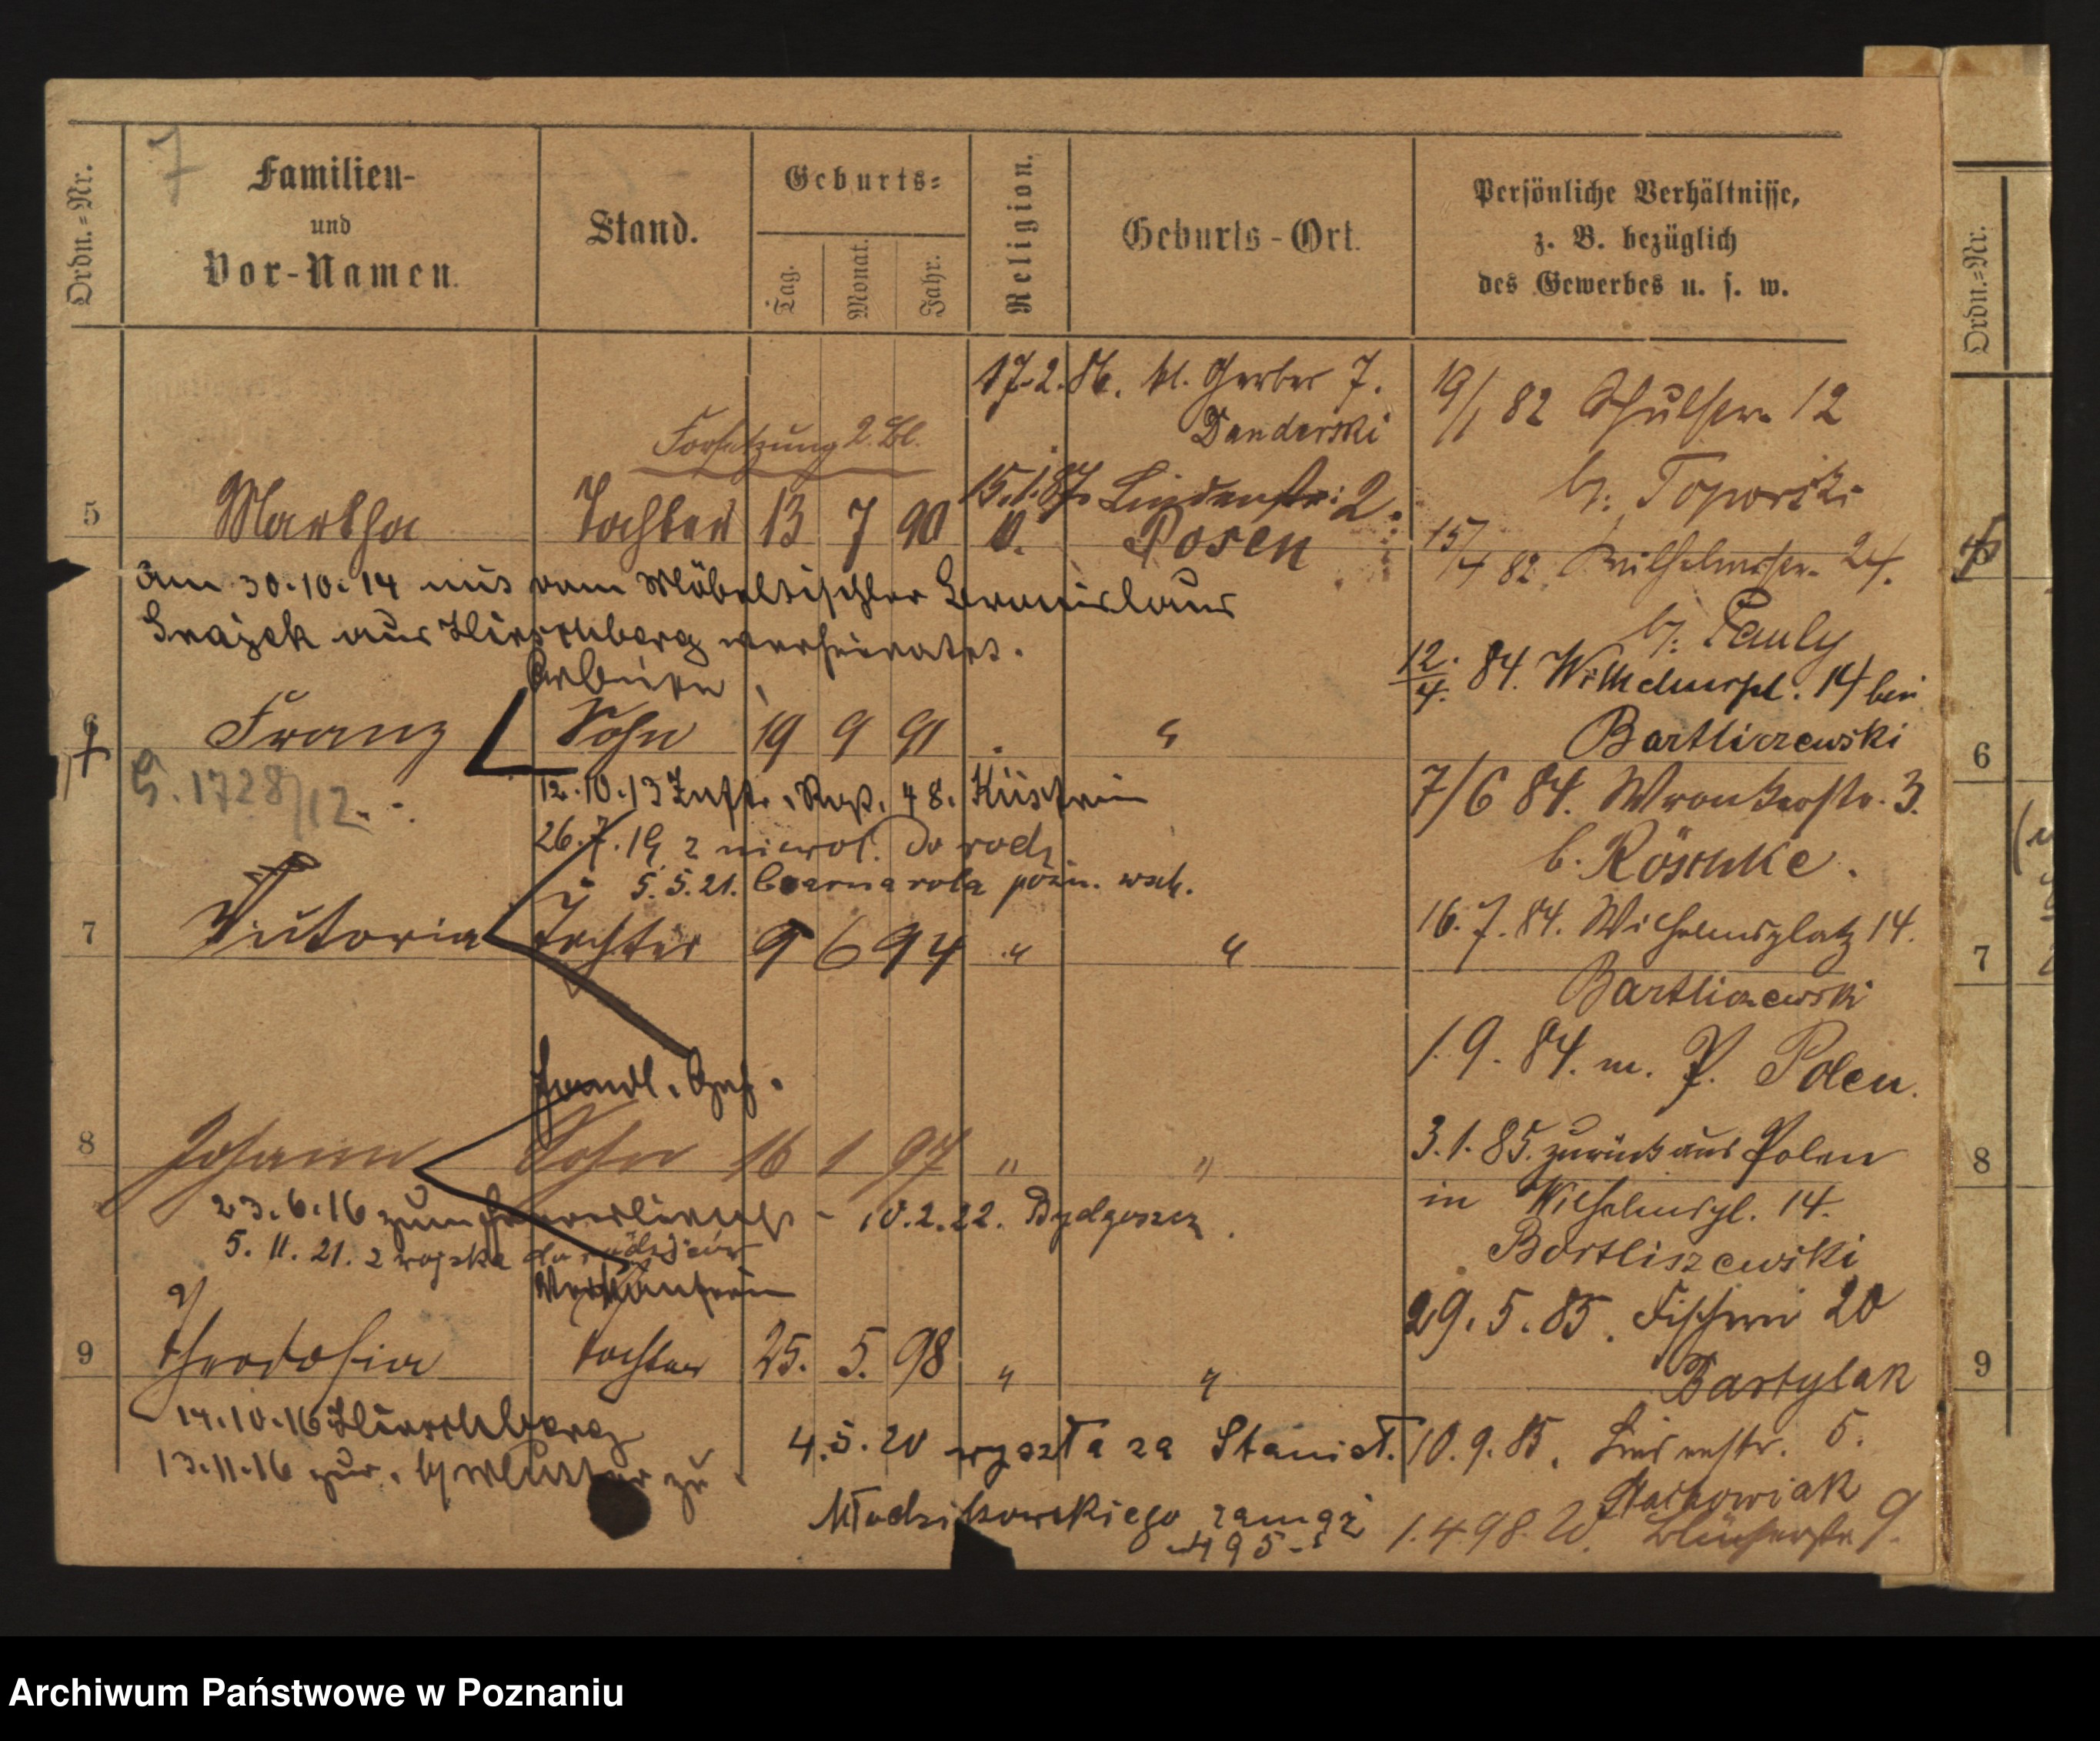 7
Ordn.=Nr.
Familien-
und
Vor-Namen.
Stand.
Geburts=
Tag.
Monat.
Jahr.
Religion.
Geburts-Ort.
Persönliche Verhältnisse,
z. B. bezüglich
des Gewerbes u. s. w.
Ordn.=Nr.
17.2.86. kl. Gerber 7.
Danderski
Fortsetzung 2. Bl.
15.1.87. Lindenstr. 2.
5 Martha Tochter 13 7 90 Posen
Am 30.10.14 mit dem Möbeltischler Bronislaus
Grajek aus Hirschberg verheiratet.
6 Franz Sohn 19 9 91 "
G. 1728/12.
12.10.13 Inftr. Rgt. 48. Küstrin
26.7.19 z niewol. do rodz
5.5.21. Czarna rola pozn. wsch.
7 Viktoria Tochter 9 6 94 " "
Handl. Geh.
8 Johann Sohn 16 1 97 " "
23.6.16 zum - 10.2.22. Bydgoszcz.
5. 11. 21. z wojska do rodziców
Verkäuferin
9 Theodosia Tochter 25. 5. 98 " "
14.10.16 Hirschberg
13.11.16 zur. b/ Mutter zu
4.5.20 wyszła za Stanisł.
Młodzikowskiego zamąż
495
19/1 82 Schulstr. 12
b. Toporski
15/4 82. Wilhelmstr. 24.
b. Pauly
12/4. 84. Wilhelmspl. 14 bei
Bartliszewski
7/6 84. Wronkerstr. 3.
b. Röschke.
16.7.84. Wilhelmsplatz 14.
Bartliszewski
1.9.84. m. P. Polen.
3.1.85. zurück aus Polen
in Wilhelmspl. 14.
Bartliszewski
29.5.85. Fischerei 20
Bartylak
10.9.85. Lindenstr. 5.
Stachowiak
1.4.98. Blücherstr 9.
6
7
8
9